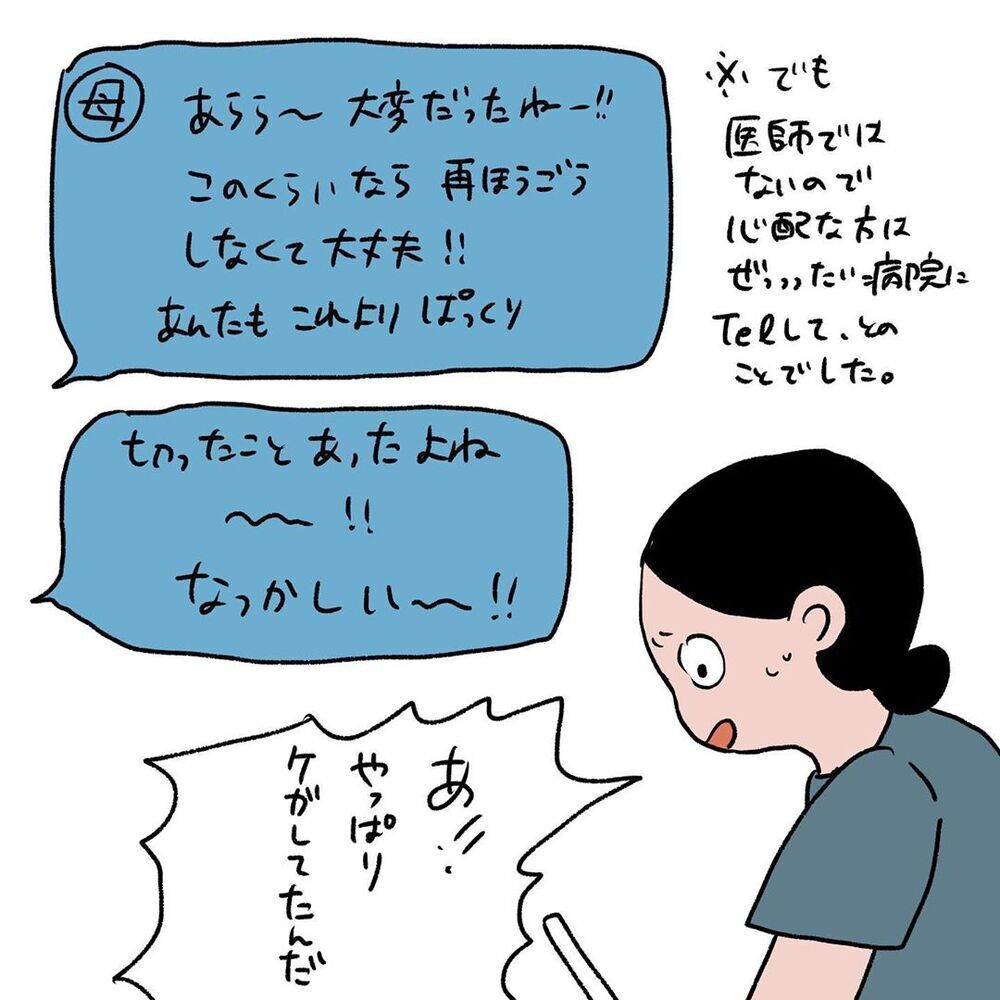 母
あらら〜 大変だったねー!!
このくらいなら 再ほうごう
しなくて大丈夫!!
あんたも これより ぱっくり
切ったこと あったよね
〜〜 !!
なっかしい〜〜!!
※でも
医師では
ないので
心配な方は
ぜっっったい病院に
Telして、との
ことでした。
あ!!
やっぱり
ケガしてたんだ